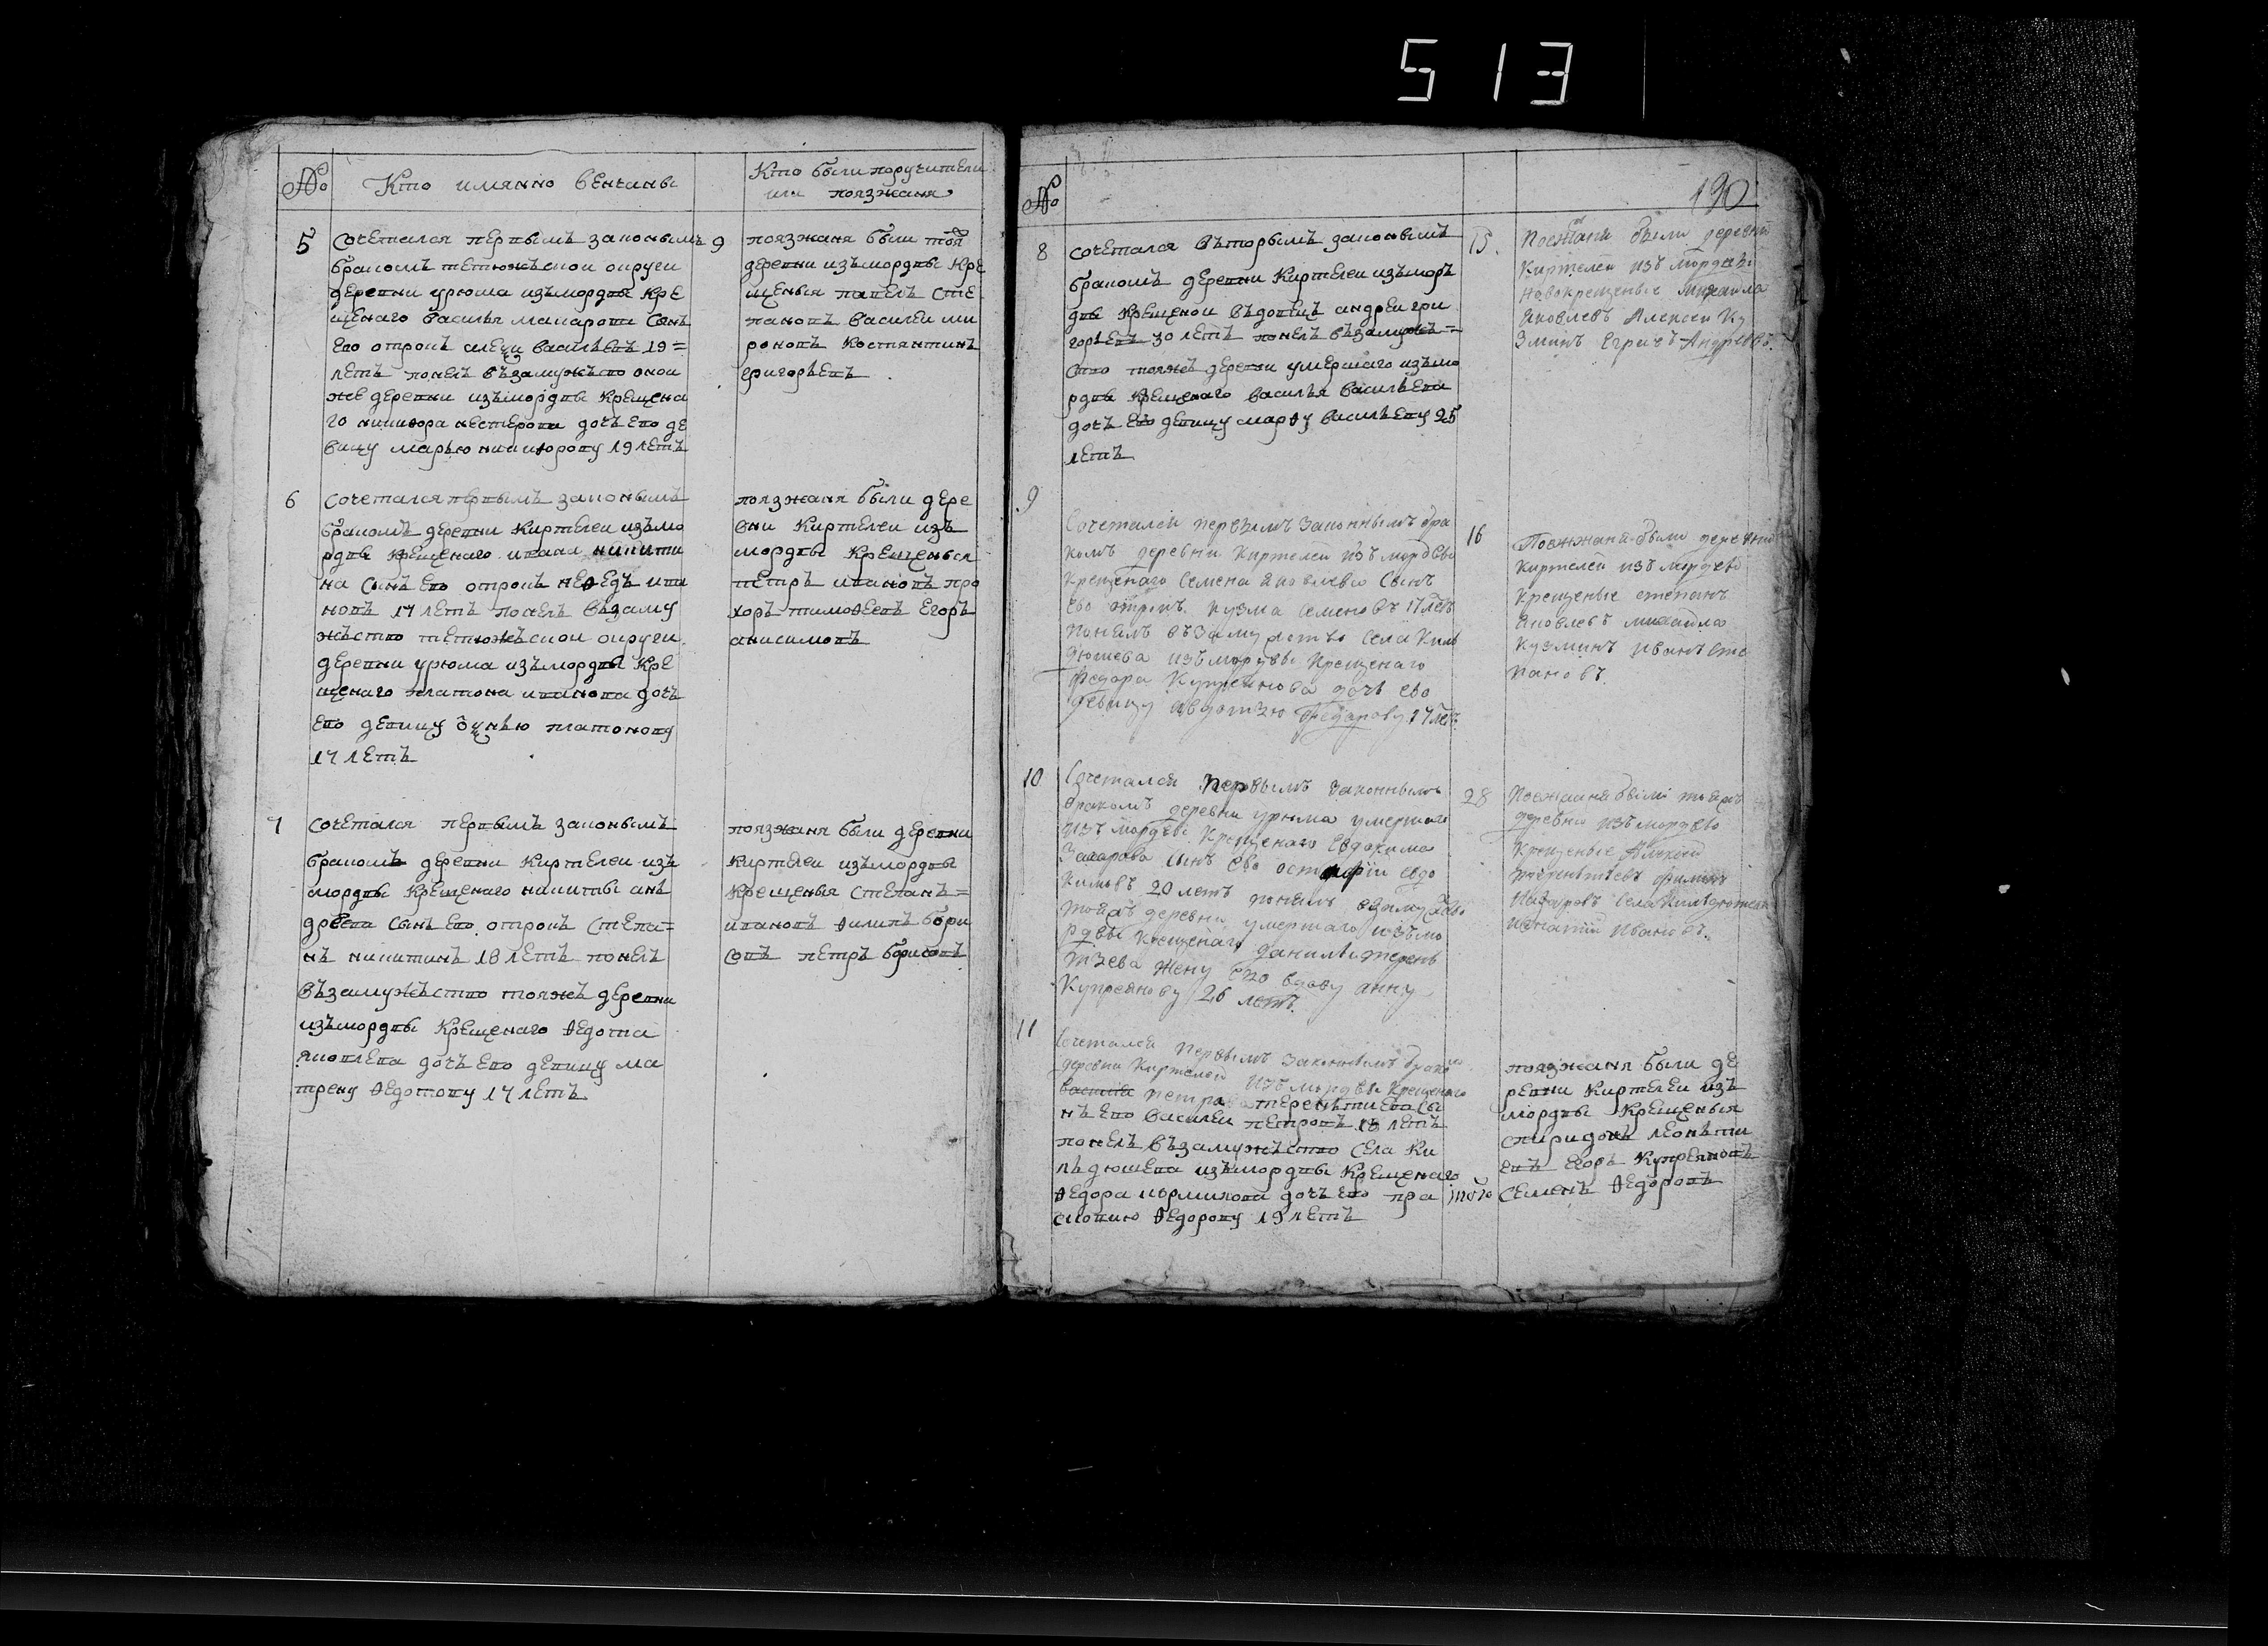 513
№
Кто имянно венчаны
Кто были поручители
или поязжаня
5
сочетался первымъ законымъ
бракомъ тетюжъскои округи
деревни урюма изъмордвы кре
щенаго василья макарова сынъ
ево отрокъ алеѯи васильевъ 19=
летъ понелъ възамужъство онои
же деревни изъмордвы крещена
го никиѳора нестерова дочъ ево де
вицу марью никиѳорову 19 летъ
9
поязжаня были тоя
деревни изъмордвы кре
щеныя павелъ сте
пановъ василеи ми
роновъ костянтинъ
григорьевъ
6
сочетался первымъ законымъ
бракомъ деревни киртелеи изъмо
рдвы крещенаго ивана никити
на сынъ ево отрокъ меѳедъ ива
новъ 17 летъ понелъ възаму
жъство тетюжъскои округи
деревни урюма изъмордвы кре
щенаго платона иванова дочъ
ево девицу платонову
17 летъ
поязжаня были дере
вни киртелеи изъ
мордвы крещеныя
петръ ивановъ про
хоръ тимоѳеевъ егоръ
анисимовъ
7
сочетался первымъ законымъ
бракомъ деревни киртелеи изъ
мордвы крещенаго никиты анъ
дреева сынъ ево отрокъ степа=
нъ никитинъ 18 летъ понелъ
възамужъство тояжъ деревни
изъмордвы крещенаго ѳедота
яковлева дочъ ево девицу ма
трену ѳедотову 17 летъ
поязжаня были деревни
киртелеи изъмордвы
крещеныя степанъ=
ивановъ ѳилипъ бори
совъ петръ борисовъ
190
№
8
сочетался въторымъ законымъ
бракомъ деревни киртелеи изъморъ
двы крещенои въдовецъ андреи гри
горьевъ 30 летъ понелъ възамужъ=
ство тояжъ деревни умершаго изъмо
рдвы крещенаго василья васильева
дочъ ево девицу марѳу васильеву 25
летъ
15.
Поезжаня были деревни
Киртелей изъ мордвы
новокрещеные михаила
Яковлевъ Алексей Ку
зминъ Егоръ Андреевъ.
9
Сочетался первымъ законнымъ бра
комъ деревни Киртелей изъ мордвы
крещенаго Семена Яковлева сынъ
ево отрокъ кузма Семеновъ 17 летъ
понялъ възамужство села Киль
дюшева изъ мордвы крещенаго
федора Купреянова дочь ево
девицу авдотью Федорову 17 летъ
16
Поезжаня были деревни
Киртелей изъ мордвы
крещеные степанъ
Яковлевъ михайла
кузминъ иванъ сте
пановъ.
10
Сочетался первымъ законнымъ
бракомъ деревни урюма умершаго
изъ мордвы крещенаго Евдокима
Захарова сынъ ево евдо
кимовъ 20 летъ понялъ
тояжъ деревни умершаго изъмо
рдвы крещенаго данилы терень
тьева жену ево вдову анну
Купреянову 26 летъ.
28
Поезжаня были тояжъ
деревни изъ мордвы
крещеные Алексей
терентьевъ филипъ
Назаровъ села Кильдюшева
игнатий Ивановъ.
11
Сочетался первымъ законнымъ браком
деревни Киртелей изъ мордвы крещенаго
петра теренътиева сы
нъ ево василеи петровъ 18 летъ
понелъ възамужъство села ки
льдюшева изъмордвы крещенаго
ѳедора ермилова дочъ ево пра
сковию ѳедорову 19 летъ
того
поязжаня были де
ревни киртелеи изъ
мордвы крещеныя
спиридонъ леонъти
евъ егоръ купреяновъ
семенъ ѳедоровъ